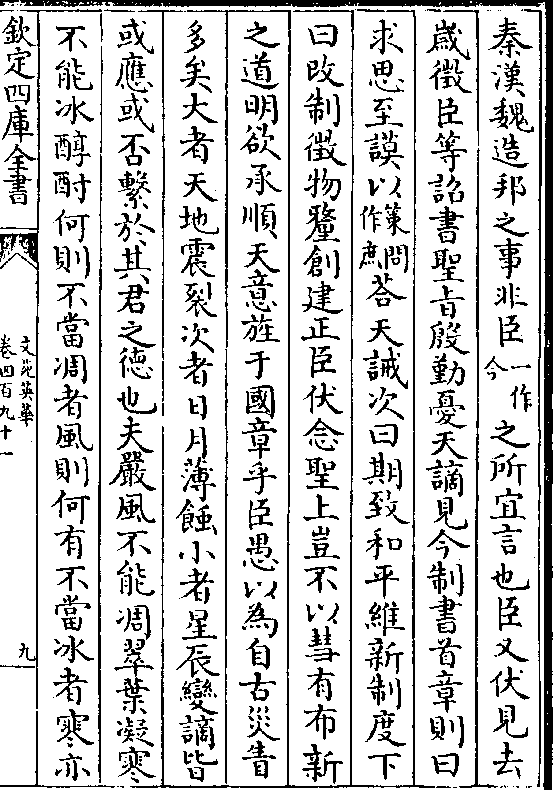 秦漢魏造邦之事非臣一作今之所宜言也臣又伏見去
歳徴臣等詔書聖㫖殷勤憂天謫見今制書首章則曰
求思至謨以策問作庶荅天誡次曰期致和平維新制度下
曰改制徴物釐創建正臣伏念聖上豈不以彗有布新
之道明欲承順天意旌于國章乎臣愚以為自古災眚
多矣大者天地震裂次者日月薄蝕小者星辰變謫皆
或應或否繫於其君之徳也夫嚴風不能凋翠葉凝寒
不能冰醇酎何則不當凋者風則何有不當冰者寒亦
欽定四庫全書
文苑英華
卷四百九十一
九